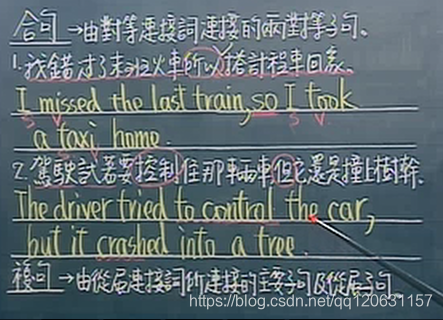 合句→由對等連接詞連接的兩對等子句。
1.我錯过了末班火車所以搭計程車回家。
I missed the last train, so I took
S V S V
a taxi home.
2.駕駛試著要控制住那輛車但它還是撞上樹幹。
The driver tried to control the car,
but it crashed into a tree.
複句→由從屬連接詞所連接的主要子句及從屬子句。
https://blog.csdn.net/qq120631157